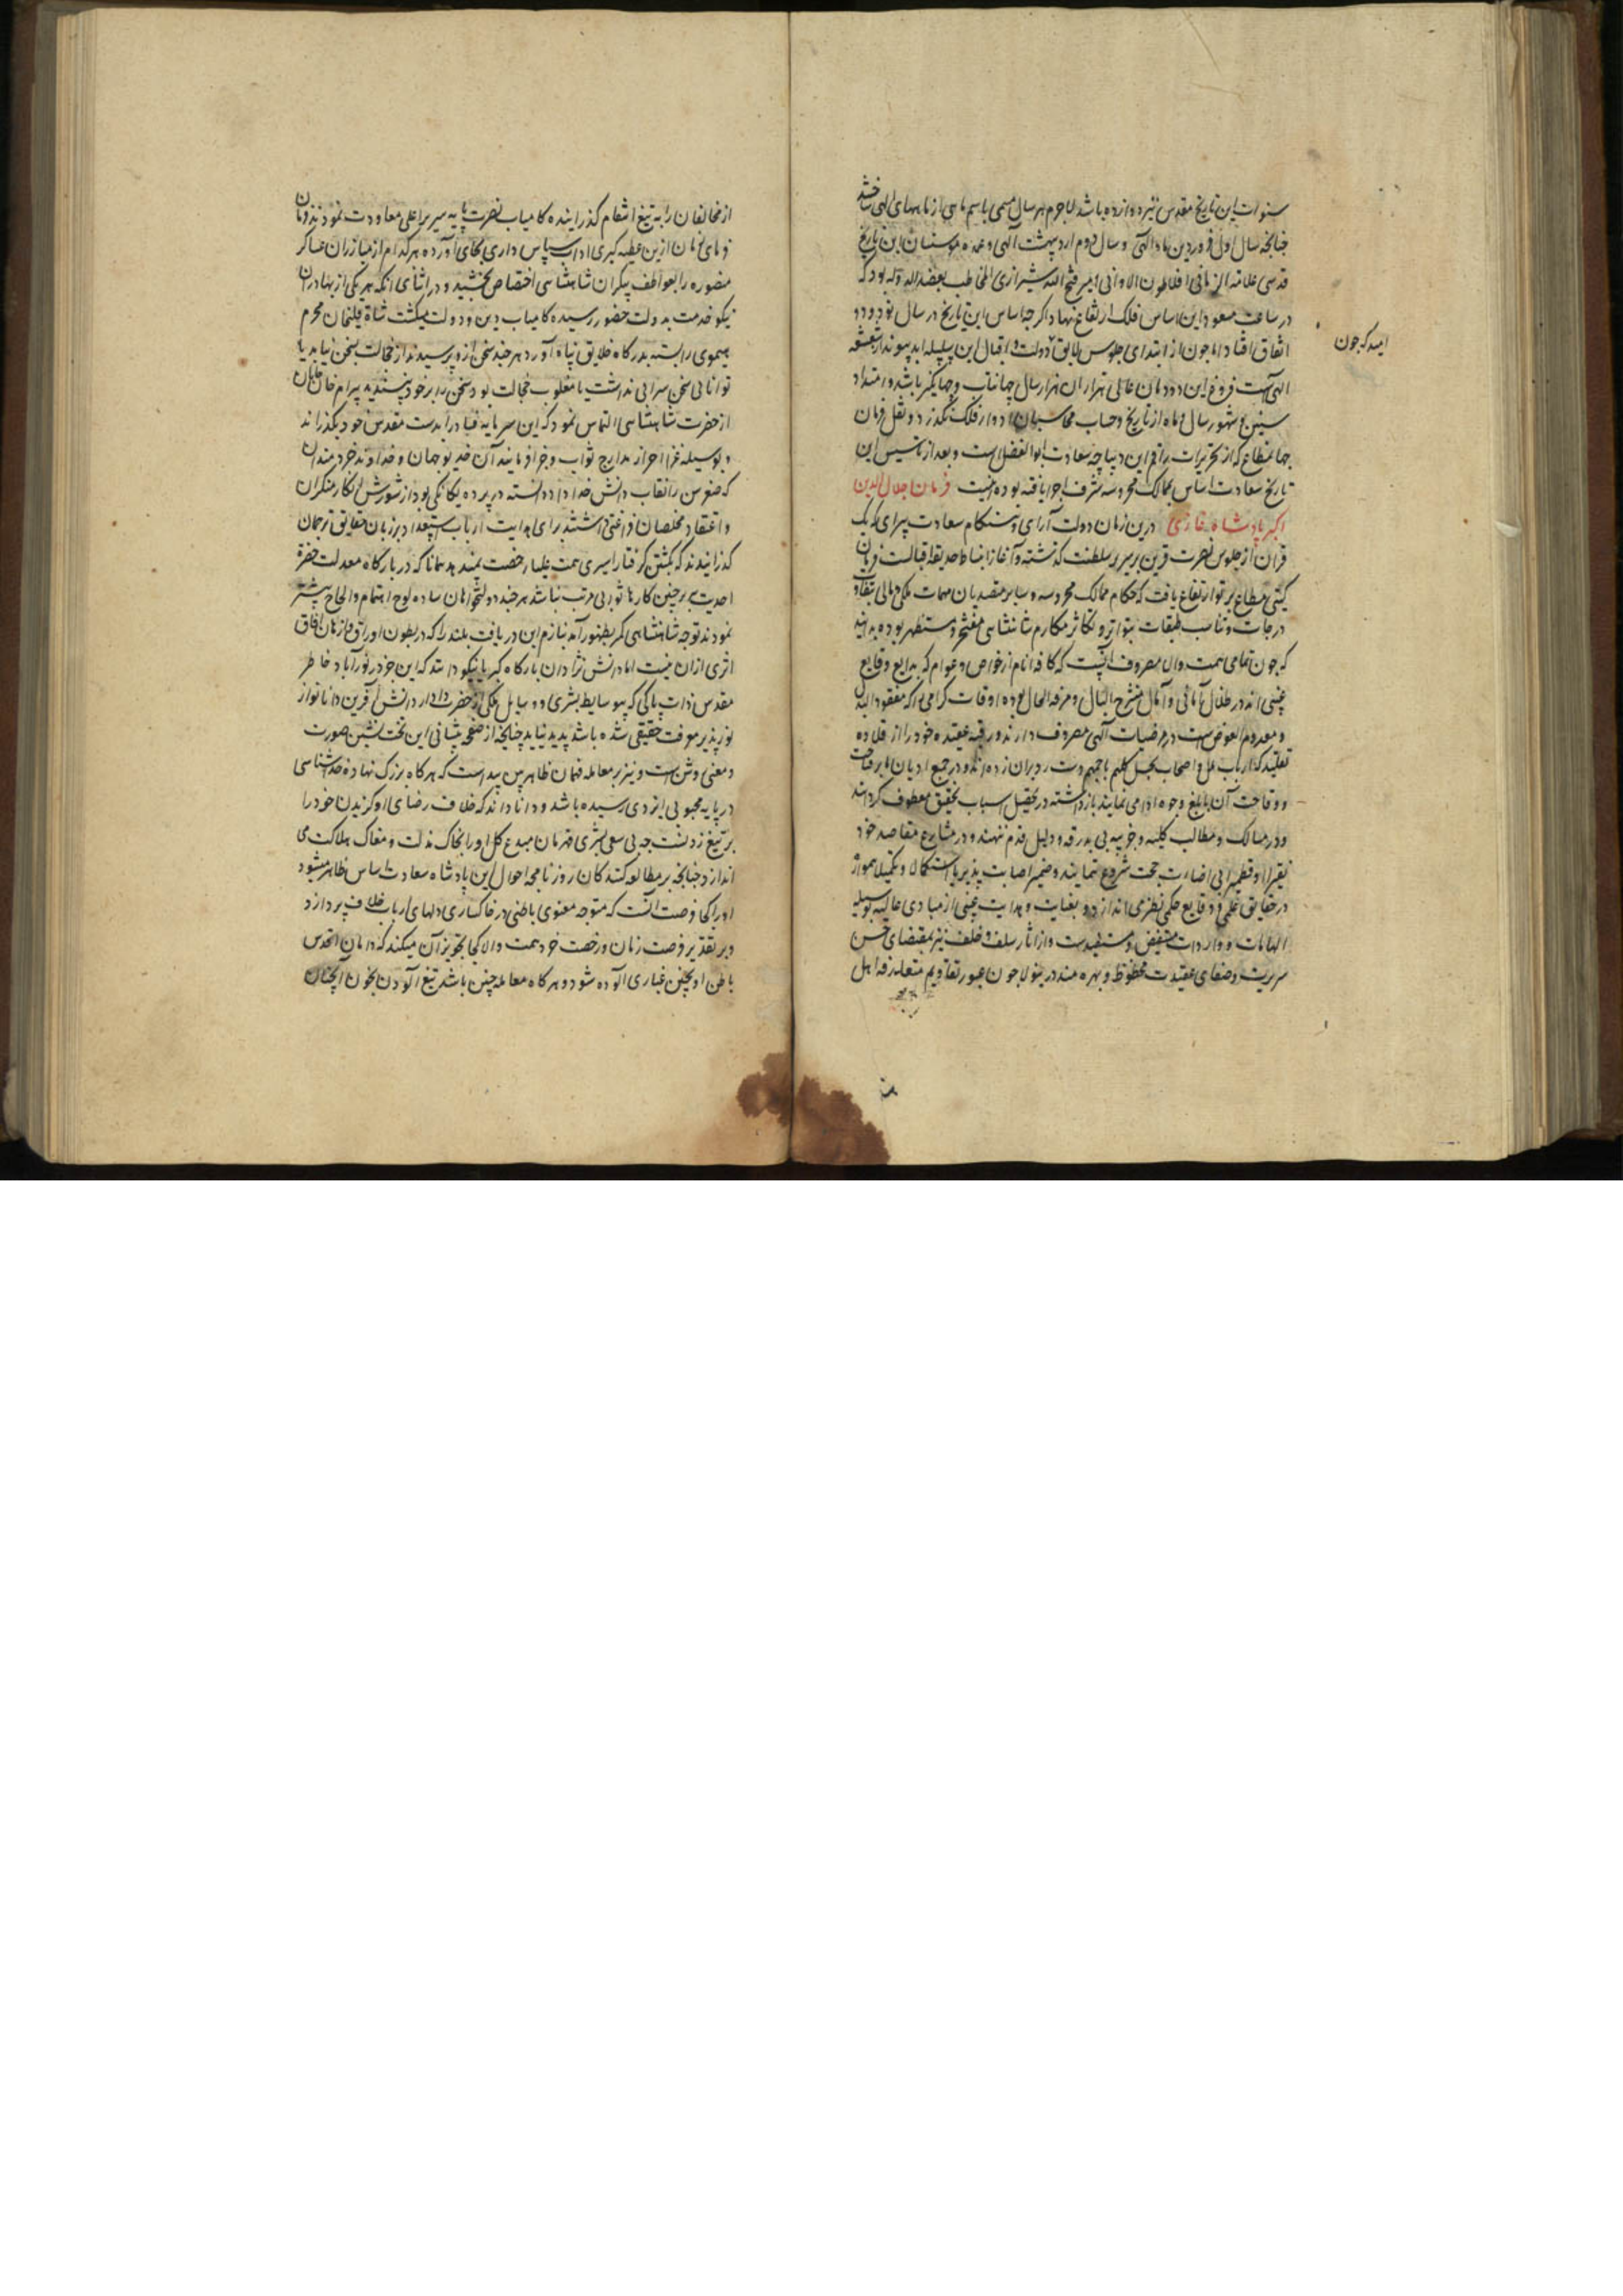 سنوات این تاریخ مقدس نیز دوازده باشد لاجرم هر سال مسمی باسم ماهی از ماههای الهی شد
چنانچه سال اول فروردین ماه الهی و سال دوم اردیبهشت الهی وعمده موسسان این تاریخ
قدسی علامة الزمانی افلاطون الاوانی امیر فتح الله شیرازی المخاطب بعضد الدوله بود که
در ساعت مسعود این اساس فلک ارتفاع نهاد اگرچه اساس این تاریخ در سال نود و دو
اتفاق افتاد اما چون از ابتدای جلوس دولت و اقبال این سلسله ابد پیوند
امید که چون
الهی است فروغ این دودمان عالی هزاران هزار سال جهانتاب و جهانگیر باشد و امتداد
سنین و شهور سال و ماه از تاریخ و حساب محاسبان ادوار فلک نگذرد و نقل فرمان
جهانمطاع که از تحریرات راقم این دیباچه سعادت ابو الفضل است و بعد از تاسیس این
تاریخ سعادت اساس بممالک محروسه شرف اجرا یافته بود اینست فرمان جلال الدین
اکبر پادشاه غازی درین زمان دولت آرای و هنگام سعادت پیرای که یک
قرن از جلوس نصرت قرین بر سریر سلطنت گذشته و آغاز انبساط حدیقه اقبالست فرمان
گیتی مطاع پرتو ارتفاع یافت که حکام ممالک محروسه و سایر متصدیان مهمات ملکی و مالی بتفاوت
درجات و تناسب طبقات بتواتر و تکاثر مکارم شاهنشاهی مفتخر و مستظهر بوده بدانند
که چون تمامی همت والا مصروف آنست که کافه انام از خواص و عوام که بدایع ودایع
غیبی اند در ظلال امانی و آمال منشرح البال و مرفه الحال بوده اوقات گرامی را که مفقود البدل
و معدوم العوض است در مرضیات الهی مصروف دارند و رقبه عقیده خود را از قلاده
تقلید که ارباب ملل و اصحاب نحل کلهم باجمعهم دست رد بران زده اند و در جمیع ادیان
و وقاحت آن بابلغ وجوه ادا می نمایند بازداشته در تحصیل اسباب تحقیق معطوف گردانند
و در مسالک و مطالب کلیه و جزئیه بی بدرقه و دلیل قدم ننهند و در مشارع مقاصد خود
نقیرا و قطمیرا بی اضاءت حجت شروع ننمایند و ضمیر اصابت پذیر ما استکمالا و تکمیلا همواره
در حقایق علمی و دقایع حکمی نظری اندازد و بعنایت و هدایت غیبی از مبادی عالیه بوسیله
الهامات و واردات مستفیض و مستفید است و از اثار سلف و خلف نیز بمقتضای حسن
سریرت و صفای عقیدت محظوظ و بهره مند درینولا چون عبور تقاویم متعارفه اهل
از مخالفان را به تیغ انتقام گذرانیده کامیاب نصرت پایه سریر اعلی معاودت نمودند و زمان
فرمای زمان ازین عطیه کبری اداب سپاس داری بجای آورده هر کدام از مبارزان عساکر
منصوره را بعواطف بیکران شاهنشاهی اختصاص بخشید و در اثنای انکه هر یکی از بهادران
نیکو خدمت بدولت حضور رسیده کامیاب دین و دولت میگشت شاه قلیخان محرم
هیموی را بسته بدرگاه خلایق پناه آورد هر چند سخن ازو پرسیدند از خجالت بسخن نیامد یا
توانائی سخن سرایی نداشت یا مغلوب خجالت بود سخن را بر خود نپسندید بیرام خان خانان
از حضرت شاهنشاهی التماس نمود که این سرمایه فساد را بدست مقدس خود بگذرانند
و بوسیله غزا احراز مدارج ثواب و جزا فرمایند آن خدیو جهان و خداوند خردمندان
که صغر سن را نقاب دانش خداداد دانسته در پرده بیگانگی بود از شورش انکار منکران
و اعتقاد مخلصان فراغتی داشتند برای هدایت ارباب استعداد بر زبان حقایق ترجمان
گذرانیدند که بکشتن گرفتار اسیری همت علیا رخصت نمیدهد همانا که در بارگاه معدلت حضرة
احدیت بر چنین کارها ثوابی مرتب نباشد هر چند دولتخواهان ساده لوح اهتمام و الحاح بیشتر
نمودند توجه شاهنشاهی کمتر بظهور آمد بنازم این دریافت بلند را که در بطون اوراق و ازمان افاق
اثری ازان نیست اما دانش نژادان بارگاه کبریا نیکو دانند که این جز در نورآباد خاطر
مقدس ذات پاکی که بیوسایط بشری و وسایل ملکی از حضرت دادار دانش آفرین دانا نواز
نور پذیر معرفت حقیقی شده باشد پدید نیاید چنانچه از صفحه پیشانی این تخت نشین صورت
و معنی روشن است و نیز بر معامله فهمان ظاهر بین پیداست که هر گاه بزرگ نهاد خداشناسی
در پایه محبوبی ایزدی رسیده باشد و دانا داند که خلاف رضای او گزیدن خود را
بر تیغ زدنست چه بی سعی بشری قهرمان مبدع کل او را بخاک مذلت و مغاک هلاکت می
اندازد چنانچه بر مطالعه کنندگان روزنامچه احوال این پادشاه سعادت اساس ظاهر میشود
او را کجا فرصت آنست که متوجه معنوی باطنی در خاکساری دلهای ارباب خلاف پردازد
و بر تقدیر فرصت زمان و رخصت خرد همت والا کجا تجویز آن میکند که دامان اقدس
باطن او بچنین غباری آلوده شود و هر گاه معامله چنین باشد تیغ آلودن بخون آنچنان